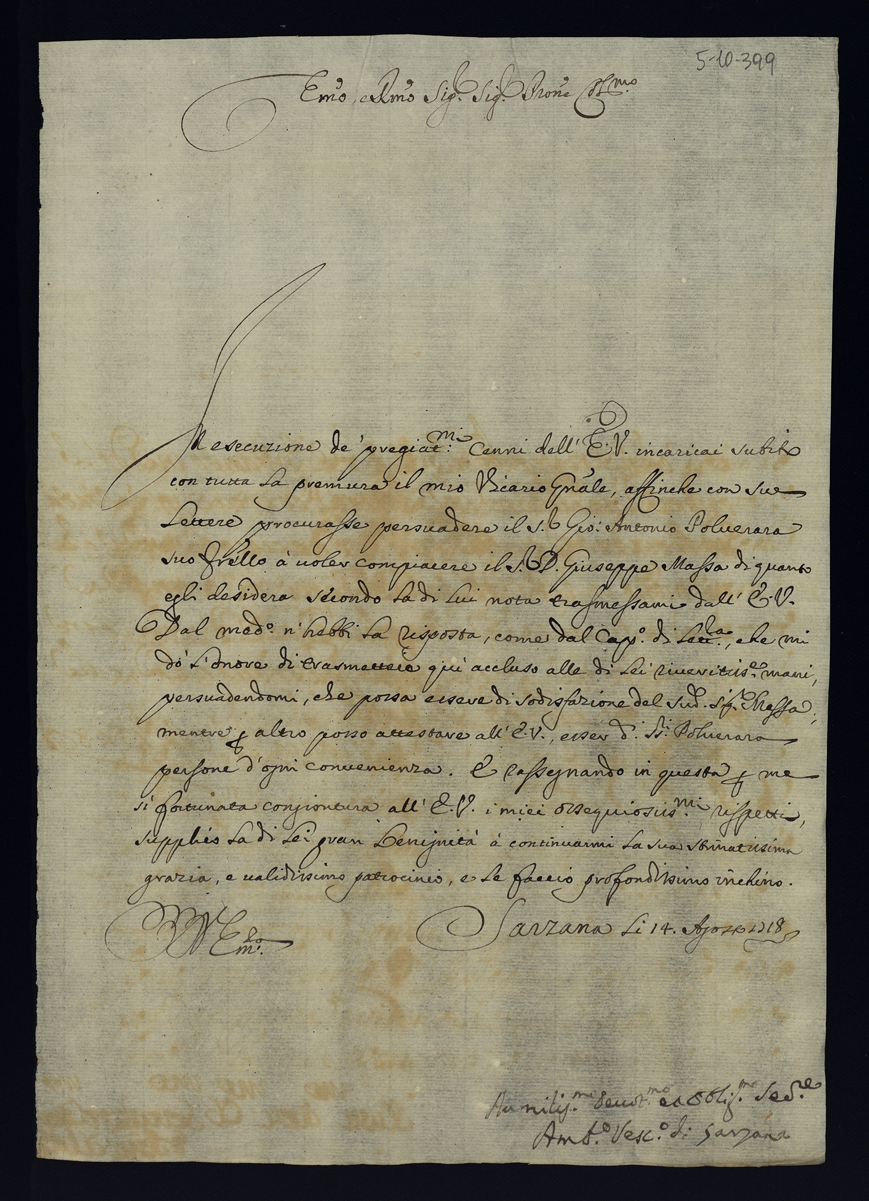 5-10-399
Emo, e Rmo Sig.r Sig.r Prone Colmo
In esecuzione de' pregiat.mi Cenni dell' E.V. incaricai subito
con tutta la premura il mio Vicario Gnāle, affinche con sue
Lettere procurasse persuadere il S.r Gio: Antonio Poluerara
suo frēllo à uoler compiacere il S.r D. Giuseppe Massa di quanto
egli desidera secondo la di lui nota trasmessami dall' E.V.
Dal med.o n'hebbi la risposta, come dal Cap.o di Lett.ra, che mi
dò l'onore di trasmettere quì accluso alle di Lei riueritiss.e mani,
persuadendomi, che possa essere di sodisfazione del sud.o Sig.r Massa,
mentre p altro posso attestare all' E.V., esser d.i SS.ri Poluerara
persone d'ogni conuenienza. E rassegnando in questa p me
sì fortunata congiontura all' E.V. i miei ossequiosiss.mi rispetti,
supplico la di Lei gran Benignità à continuarmi la sua stimatissima
grazia, e ualidissimo patrocinio, e le faccio profondissimo inchino.
Sarzana li 14. Agosto 1718
Em.o
Humiliss.mo Deuot.mo ed Oblig.mo Ser.re
Amb.o Vesc.o di Sarzana